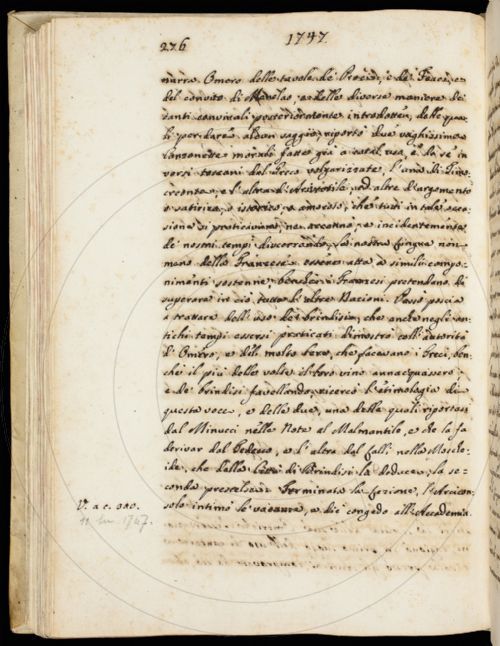 276
1747.
narra Omero delle tavole de' Proci, e de' Feaci, e
del convito di Menelao, e delle diverse maniere de'
canti conviviali posteriormente introdotte, delle qua-
li per dare alcun saggio, riportò due vaghissime
canzonette morali fatte già a total uso, e da sè in
versi toscani dal Greco volgarizzate, l'una di Ana-
creonte, e l'altra d'Aristotile, ed altre d'argomento
o satirico, o istorico, o amoroso, che tutti in tale occa-
sione si praticavano, ne accennò, e incidentemente
de' nostri tempi discorrendo, la nostra lingua non
meno della Francese essere atta a simili compo-
nimenti sostenne, benchè i Francesi pretendano di
superare in ciò tutte l'altre Nazioni. Passò poscia
a trattare dell'uso de' brindisi, che anche negli an-
tichi tempi essersi praticati dimostrò coll'autorità
d'Omero, e del molto bere, che facevano i Greci, ben-
chè il più delle volte il loro vino annacquassero;
e de' brindisi favellando, ricercò l'etimologia di
questa voce, e delle due, una delle quali riportasi
dal Minucci nelle Note al Malmantile, e che la fa
derivar dal Tedesco, e l'altra dal Lalli nella Mosche-
ide, che dalla Città di Brindisi la deduce, la se-
conda prescelse. Terminata la lezione, l'Arcicon-
solo intimò le vacanze, e diè congedo all'Accademia.
V. a c.
1747.